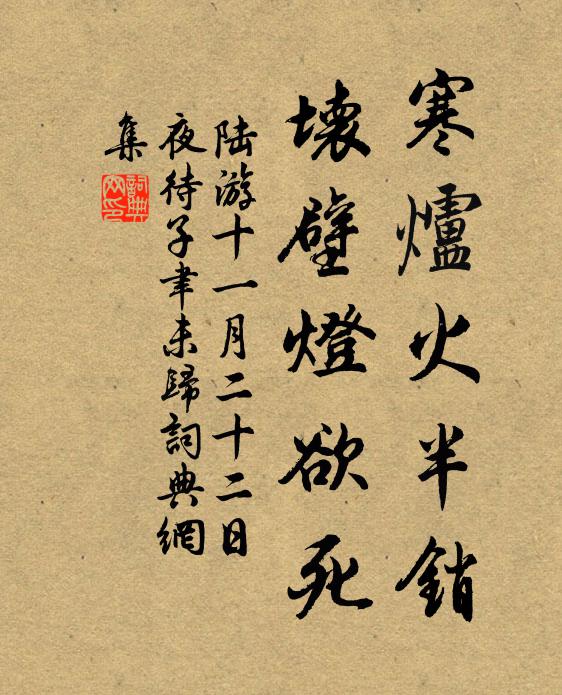 寒爐火半銷
壞壁燈欲死
陸游十一月二十二日
夜待子聿未歸詞典網
集
詞典
网印